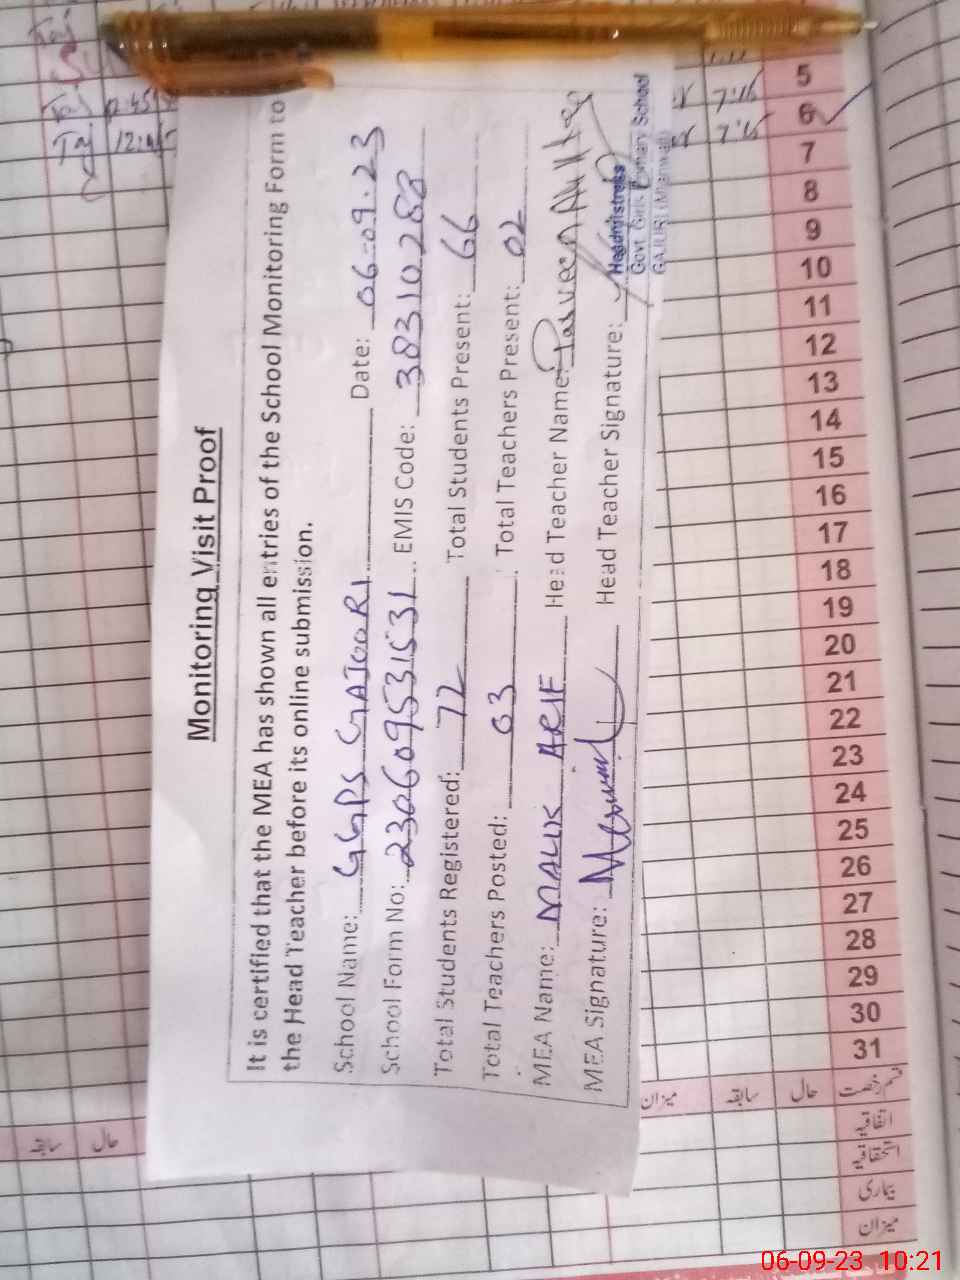 Monitoring Visit Proof
It is certified that the MEA has shown all entries of the School Monitoring Form to
the Head Teacher before its online submission.
School Name: GGPS GAJOORI Date: 06-09-23
School Form No: 230609531531 EMIS Code: 38310288
Total Students Registered: 72 Total Students Present: 66
Total Teachers Posted: 03 Total Teachers Present: 02
MEA Name: MALIK ARIF Head Teacher Name: Parveen Akhtar
MEA Signature: Head Teacher Signature:
Headmistress
Govt. Girls Primary School
5
6
7
8
9
10
11
12
13
14
15
16
17
18
19
20
21
22
23
24
25
26
27
28
29
30
31
7:15
7:15
Taj
Taj 12:45
قسم رخصت
حال
سابقہ
میزان
اتفاقیہ
استحقاقیہ
بیماری
میزان
حال
سابقہ
06-09-23 10:21